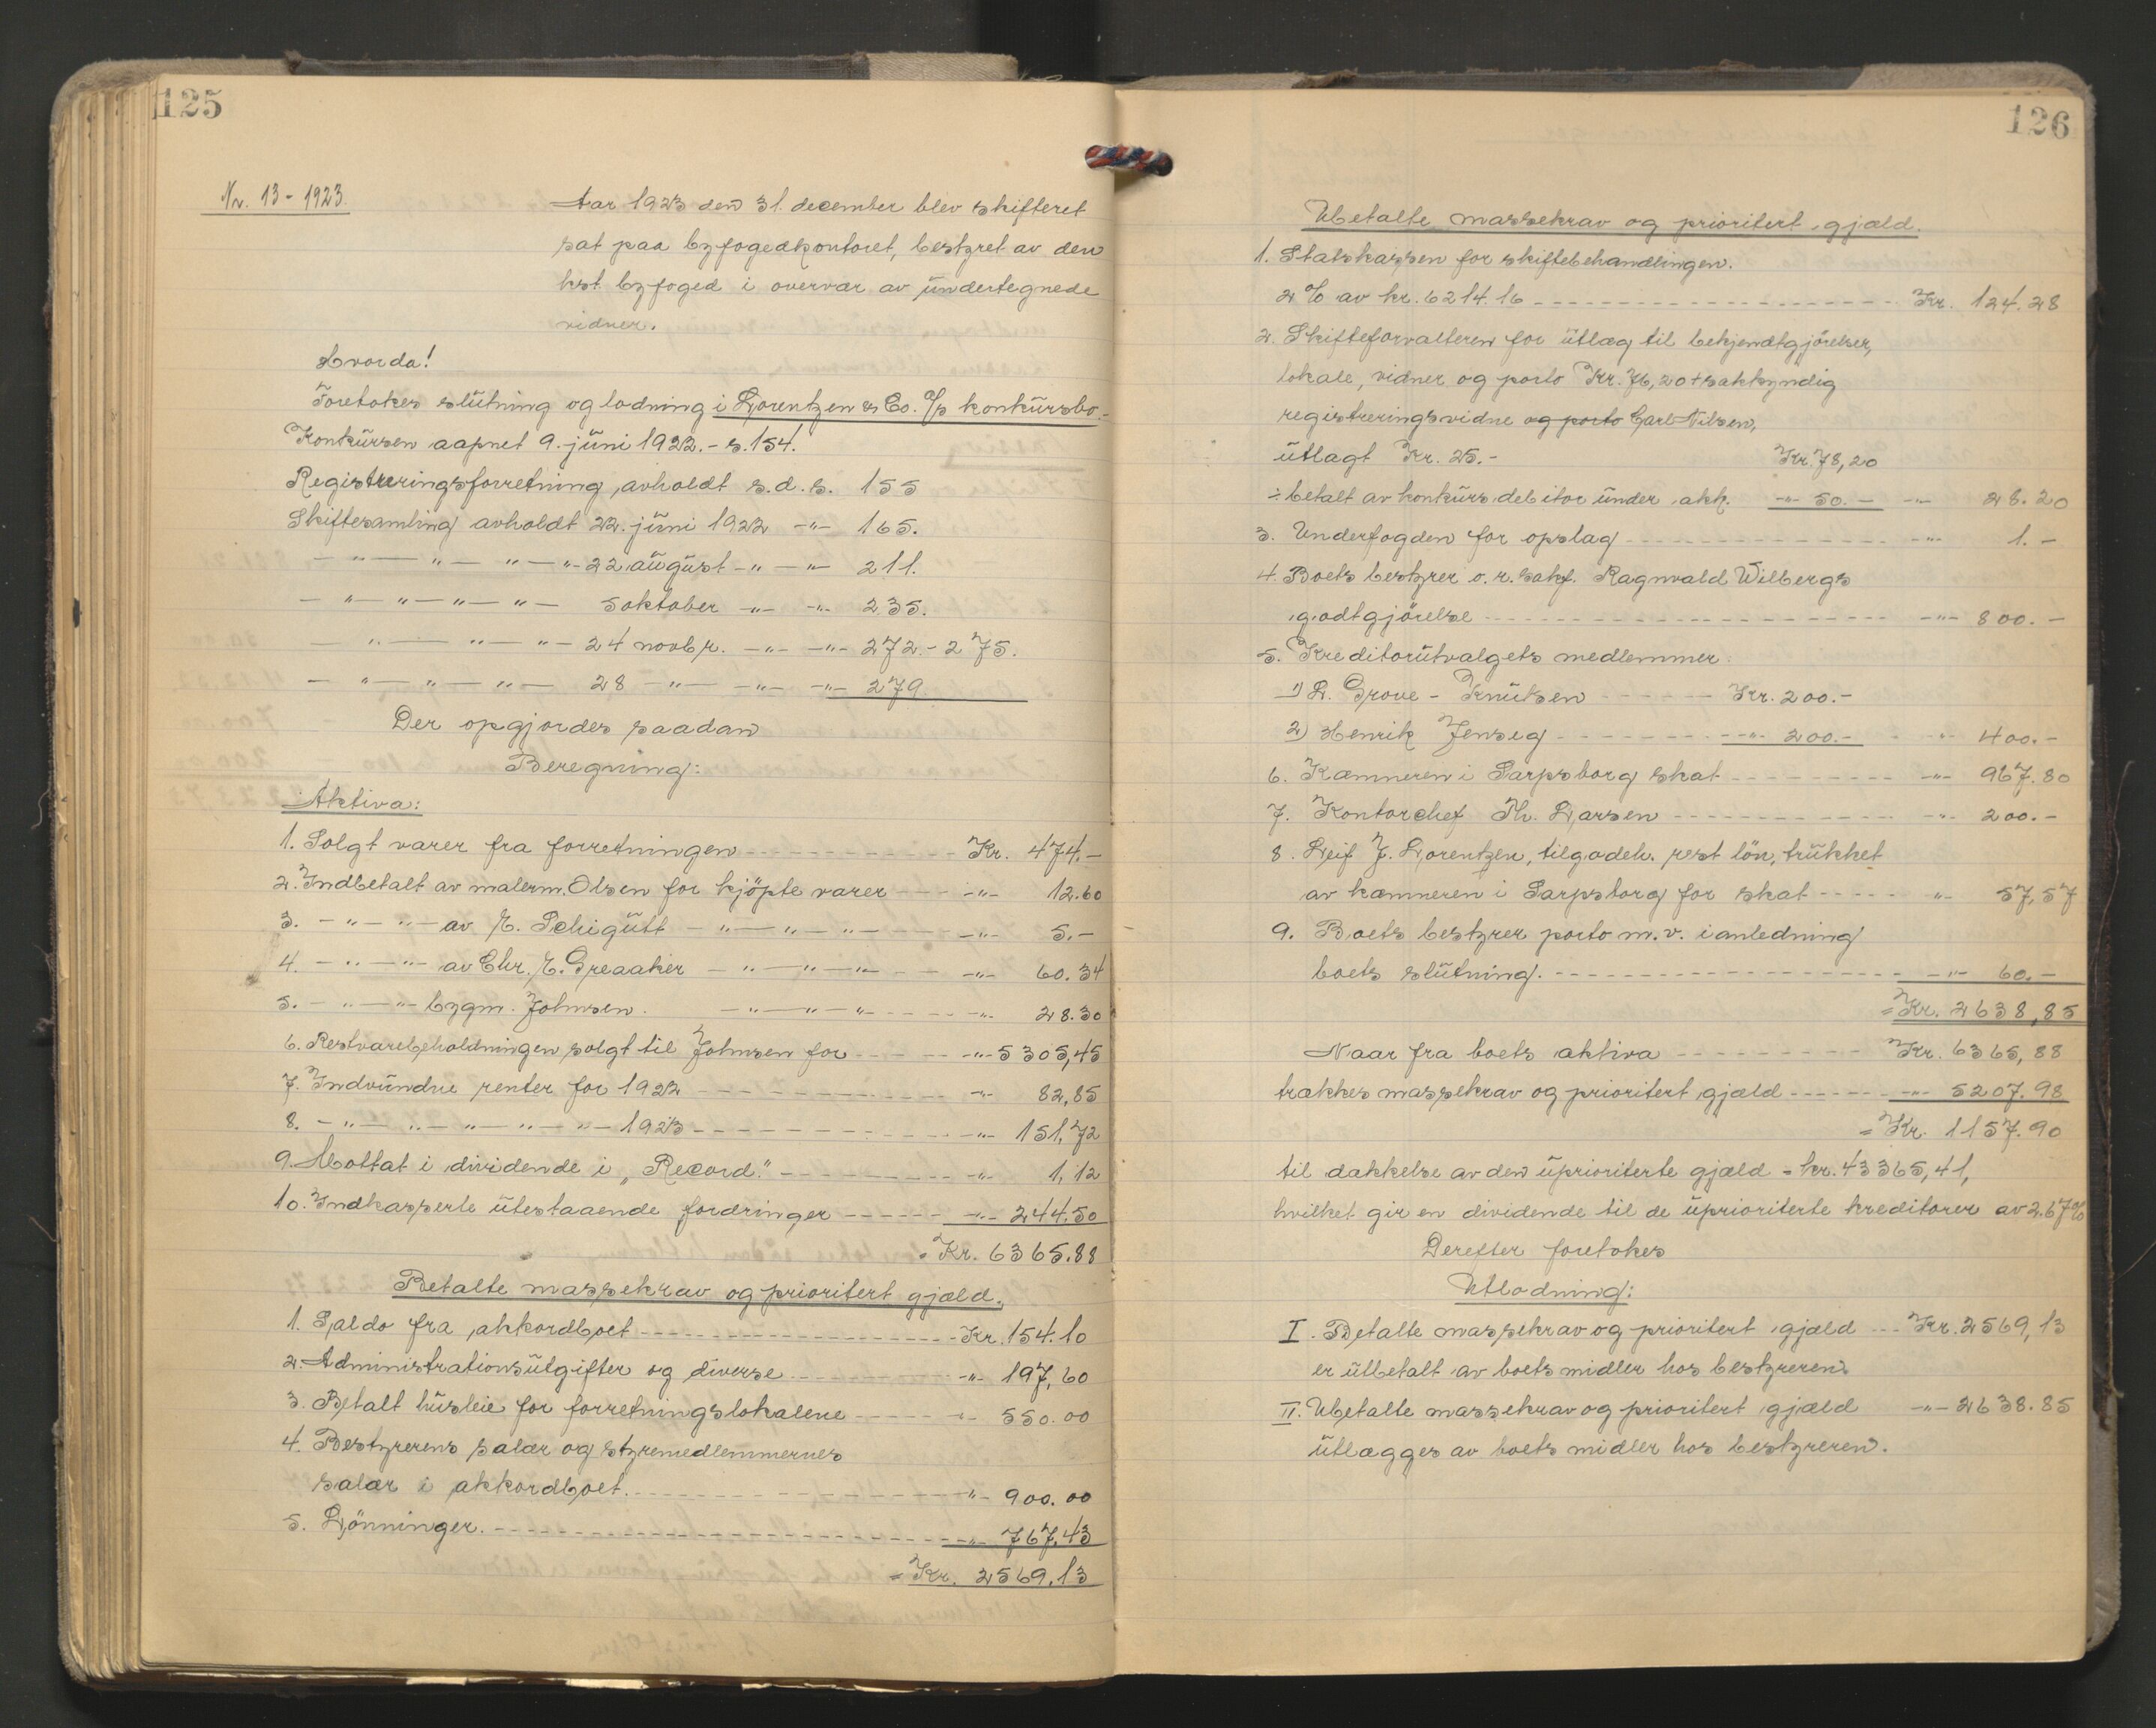 125
Nr. 13 - 1923.
Aar 1923 den 31. december blev skifteret
sat paa byfogedkontoret, bestyret av den
kst. byfoged i overvær av undertegnede
vidner.
Hvorda!
Foretokes slutning og lodning i Lorentzen & Co. A/s konkursbo.-
Konkursen aapnet 9. juni 1922. - s. 154.
Registreringsforretning avholdt s.d. s. 155
Skiftesamling avholdt 22. juni 1922 -"- 165.
- " - " - " - " - 22 august -"- -"- 211.
- " - " - " - " - 5 oktober -"- -"- 235.
- " - " - " - 24 novbr. -"- -"- 272.- 275.
- " - " - " - 28 -"- -"- -"- 279.
Der opgjordes saadan
Beregning:
Aktiva:
1. Solgt varer fra forretningen --- Kr. 474.-
2. Indbetalt av malerm. Olsen for kjöpte varer --- -"- 12.60
3. - " - " - av E. Schigutt - " - " - " - --- -"- 5.-
4. - " - " - av Chr. E. Greaaker - " - " - " - --- -"- 60.34
5. - " - " - bygm. Johnsen. - " - " - " --- -"- 28.30
6. Restvarebeholdningen solgt til Johnsen for --- -"- 5305,45
7. Indvundne renter for 1922 --- -"- 82,85
8. - " - " - " - " - " - 1923 --- -"- 151,72
9. Mottat i dividende i "Record." --- -"- 1,12
10. Indkasserte utestaaende fordringer --- -"- 244.50
= Kr. 6365.88
Betalte massekrav og prioritert gjæld.
1. Saldo fra akkordboet --- Kr. 154.10
2. Administrationsutgifter og diverse --- -"- 197,60
3. Betalt husleie for forretningslokalene --- -"- 550.00
4. Bestyrerens salær og styremedlemmernes
salær i akkordboet. --- -"- 900.00
5. Lönninger. --- -"- 767,43
= Kr. 2569.13
126
Ubetalte massekrav og prioritert gjæld.
1. Statskassen for skiftebehandlingen.
2 % av kr. 6214.16 --- Kr. 124.28
2. Skifteforvalteren for utlæg til bekjendtgjörelser,
lokale, vidner og porto Kr. 76,20 + sakkyndig
registreringsvidne og porto Carl Nilsen,
utlagt Kr. 25.- Kr. 78,20
÷ betalt av konkursdebitor under akk. -"- 50.- -"- 28.20
3. Underfogden for opslag --- -"- 1.-
4. Boets bestyrer o.r.sakf. Ragnvald Wilbergs
godtgjörelse --- -"- 800.-
5. Kreditorutvalgets medlemmer:
1) L. Grove - Knutsen --- Kr. 200.-
2) Henrik Jenseg --- -"- 200.- - -"- 400.-
6. Kæmneren i Sarpsborg skat --- -"- 967.80
7. Kontorchef Th. Larsen --- -"- 200.-
8. Leif J. Lorentzen, tilgodeh. rest lön, trukket
av kæmneren i Sarpsborg for skat --- -"- 57,57
9. Boets bestyrer porto m.v. i anledning
boets slutning. --- -"- 60.-
= Kr. 2638,85
Naar fra boets aktiva --- Kr. 6365,88
trækkes massekrav og prioritert gjæld --- -"- 5207.98
= Kr. 1157.90
til dækkelse av den uprioriterte gjæld = kr. 43365,41,
hvilket gir en dividende til de uprioriterte kreditorer av 2.67%
Derefter foretokes
Utlodning:
I. Betalte massekrav og prioritert gjæld --- Kr. 2569,13
er utbetalt av boets midler hos bestyreren.
II. Ubetalte massekrav og prioritert gjæld -"- 2638.85
utlægges av boets midler hos bestyreren.